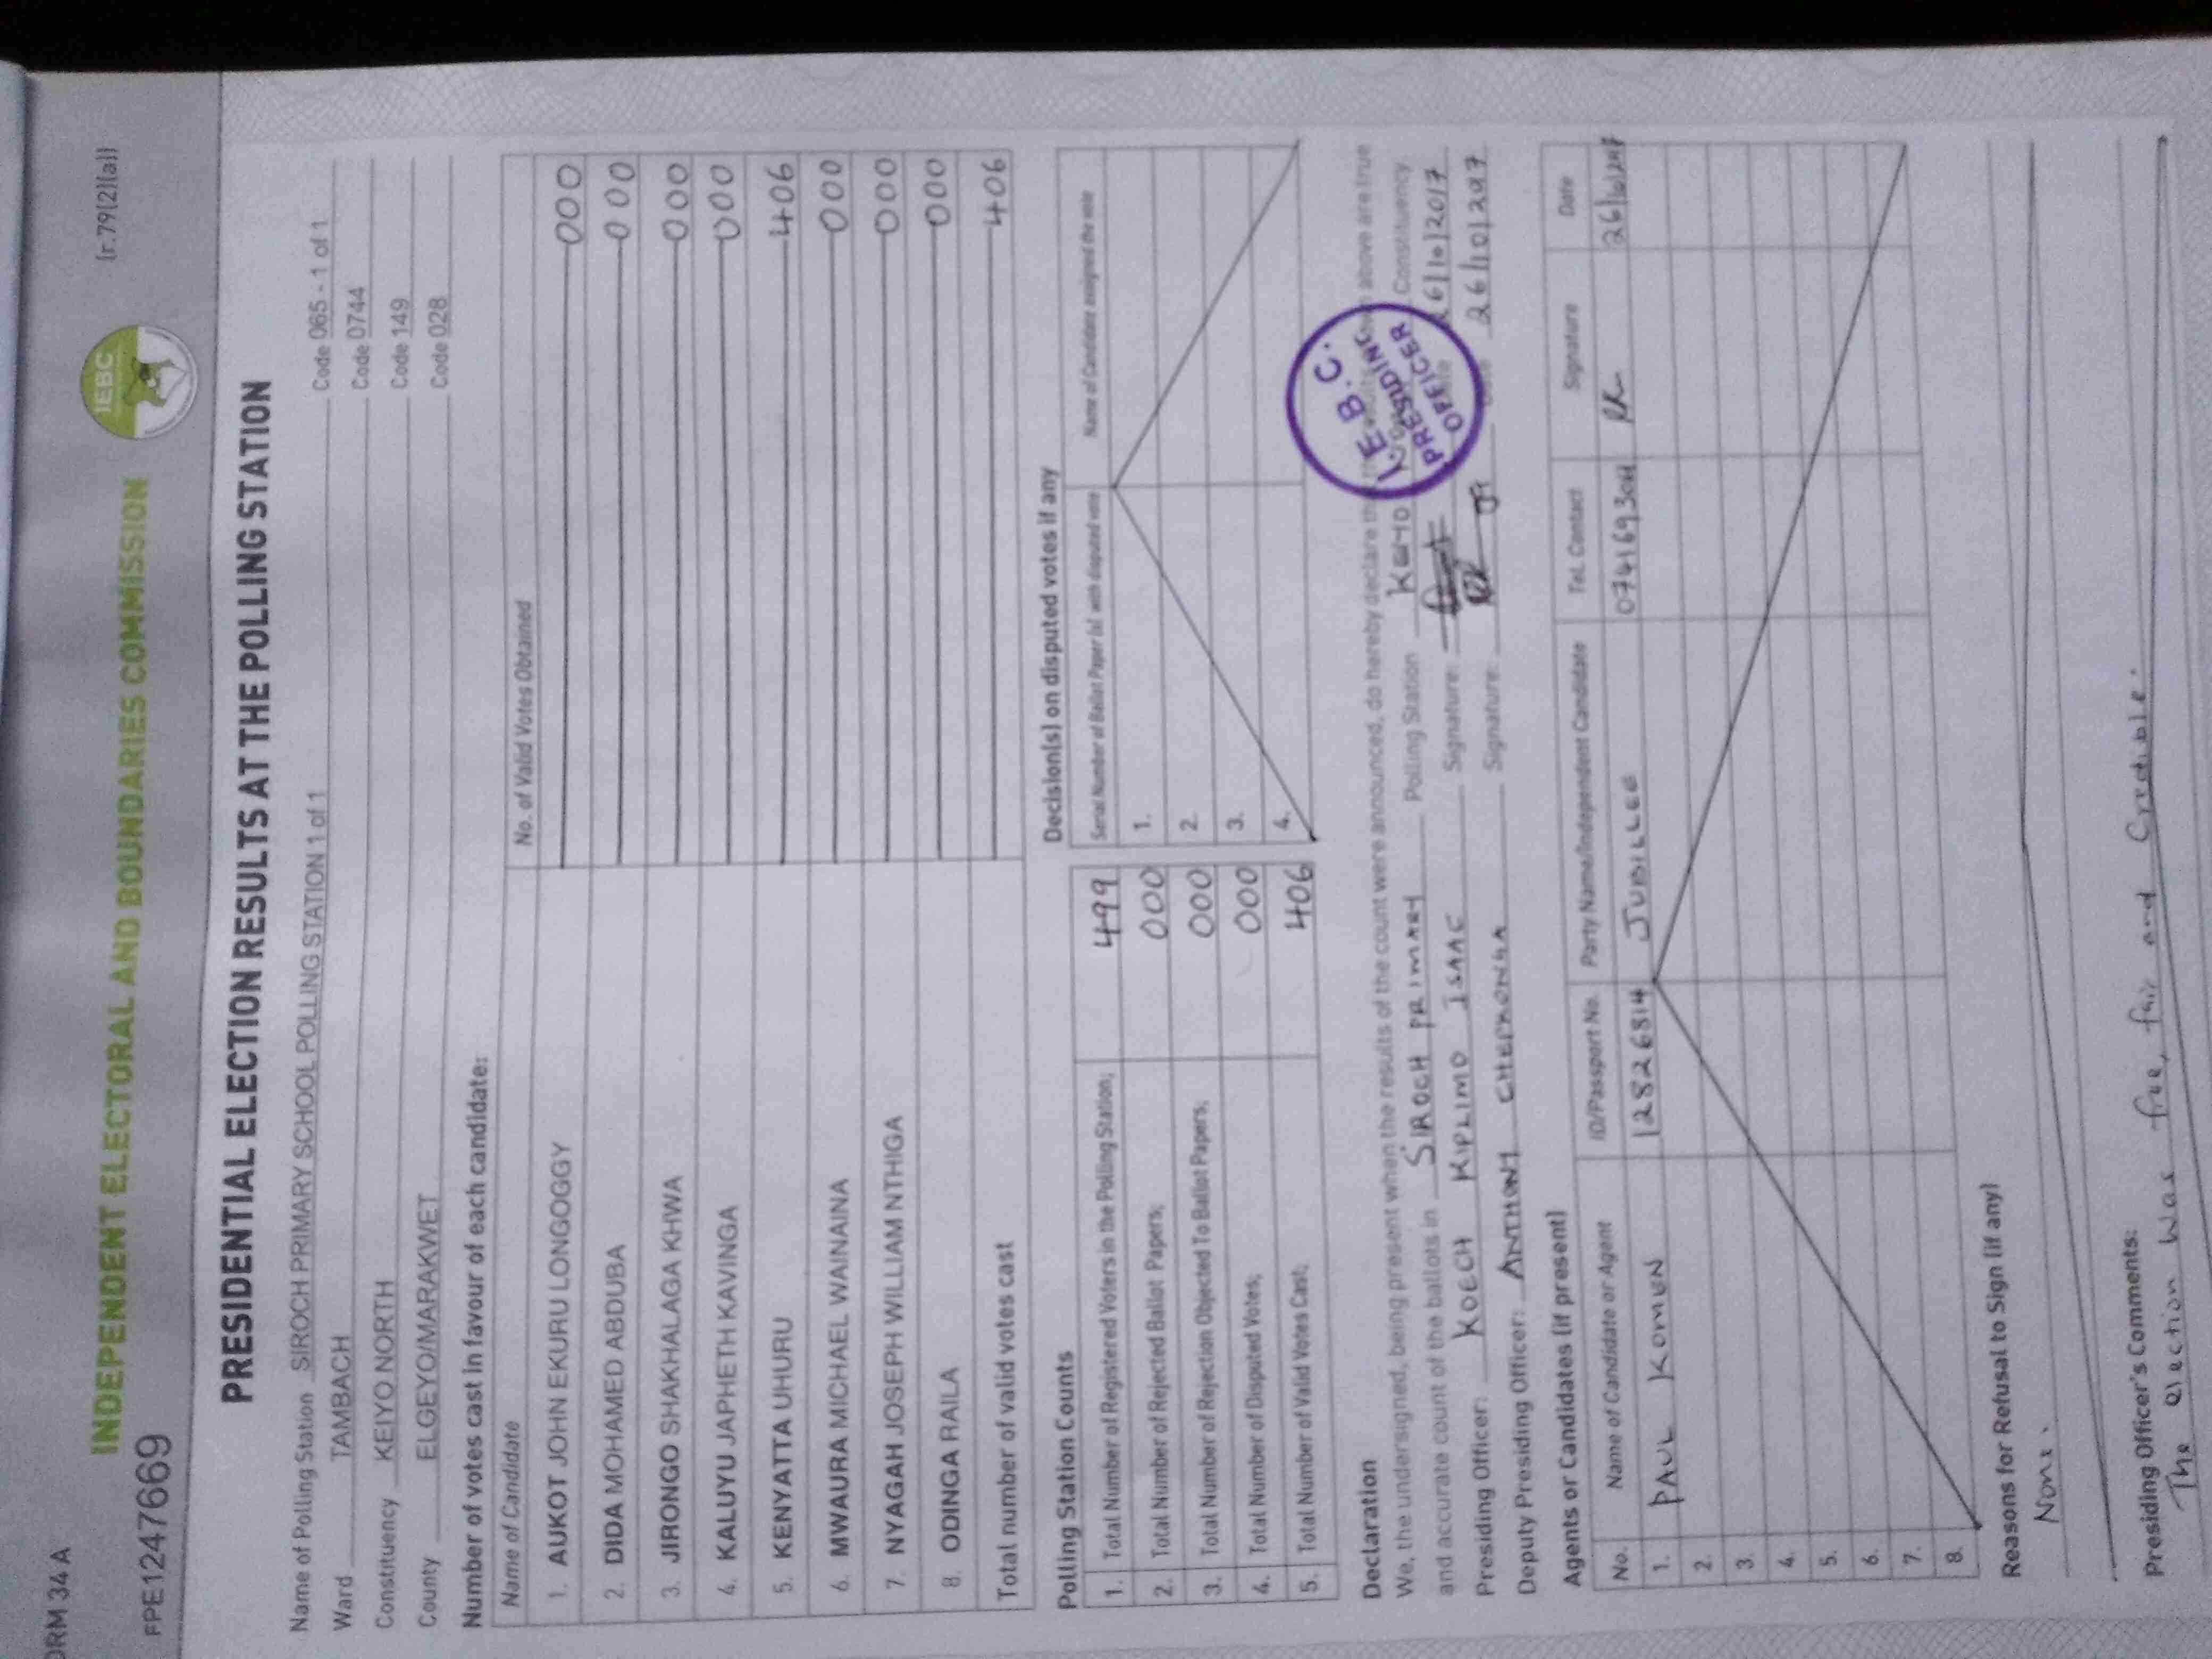 ORM 34 A
(r.79(2)(a))
INDEPENDENT ELECTORAL AND BOUNDARIES COMMISSION
IEBC
FPE1247669
PRESIDENTIAL ELECTION RESULTS AT THE POLLING STATION
Name of Polling Station SIROCH PRIMARY SCHOOL POLLING STATION 1 of 1 Code 065 - 1 of 1
Ward TAMBACH Code 0744
Constituency KEIYO NORTH Code 149
County ELGEYO/MARAKWET Code 028
Number of votes cast in favour of each candidate:
Name of Candidate No. of Valid Votes Obtained
1. AUKOT JOHN EKURU LONGOGGY 000
2. DIDA MOHAMED ABDUBA 000
3. JIRONGO SHAKHALAGA KHWA 000
4. KALUYU JAPHETH KAVINGA 000
5. KENYATTA UHURU 406
6. MWAURA MICHAEL WAINAINA 000
7. NYAGAH JOSEPH WILLIAM NTHIGA 000
8. ODINGA RAILA 000
Total number of valid votes cast 406
Polling Station Counts
1. Total Number of Registered Voters in the Polling Station; 499
2. Total Number of Rejected Ballot Papers; 000
3. Total Number of Rejection Objected To Ballot Papers; 000
4. Total Number of Disputed Votes; 000
5. Total Number of Valid Votes Cast; 406
Decision(s) on disputed votes if any
Serial Number of Ballot Paper (s) with disputed vote Name of Candidate assigned the vote
1.
2.
3.
4.
Declaration
We, the undersigned, being present when the results of the count were announced, do hereby declare above are true
and accurate count of the ballots in SIROCH PRIMARY Polling Station KEIYO Constituency
Presiding Officer: KOECH KIPLIMO ISAAC Signature: 26/10/2017
Deputy Presiding Officer: ANTHONY CHEPKONGA Signature: 26/10/2017
I.E.B.C.
PRESIDING
OFFICER
Agents or Candidates (if present)
No. Name of Candidate or Agent ID/Passport No. Party Name/Independent Candidate Tel. Contact Signature Date
1. PAUL KOMEN 12826814 JUBILLEE 0741693044 PK 26/10/2017
2.
3.
4.
5.
6.
7.
8.
Reasons for Refusal to Sign (if any)
None.
Presiding Officer's Comments:
The election was free, fair and Credible.